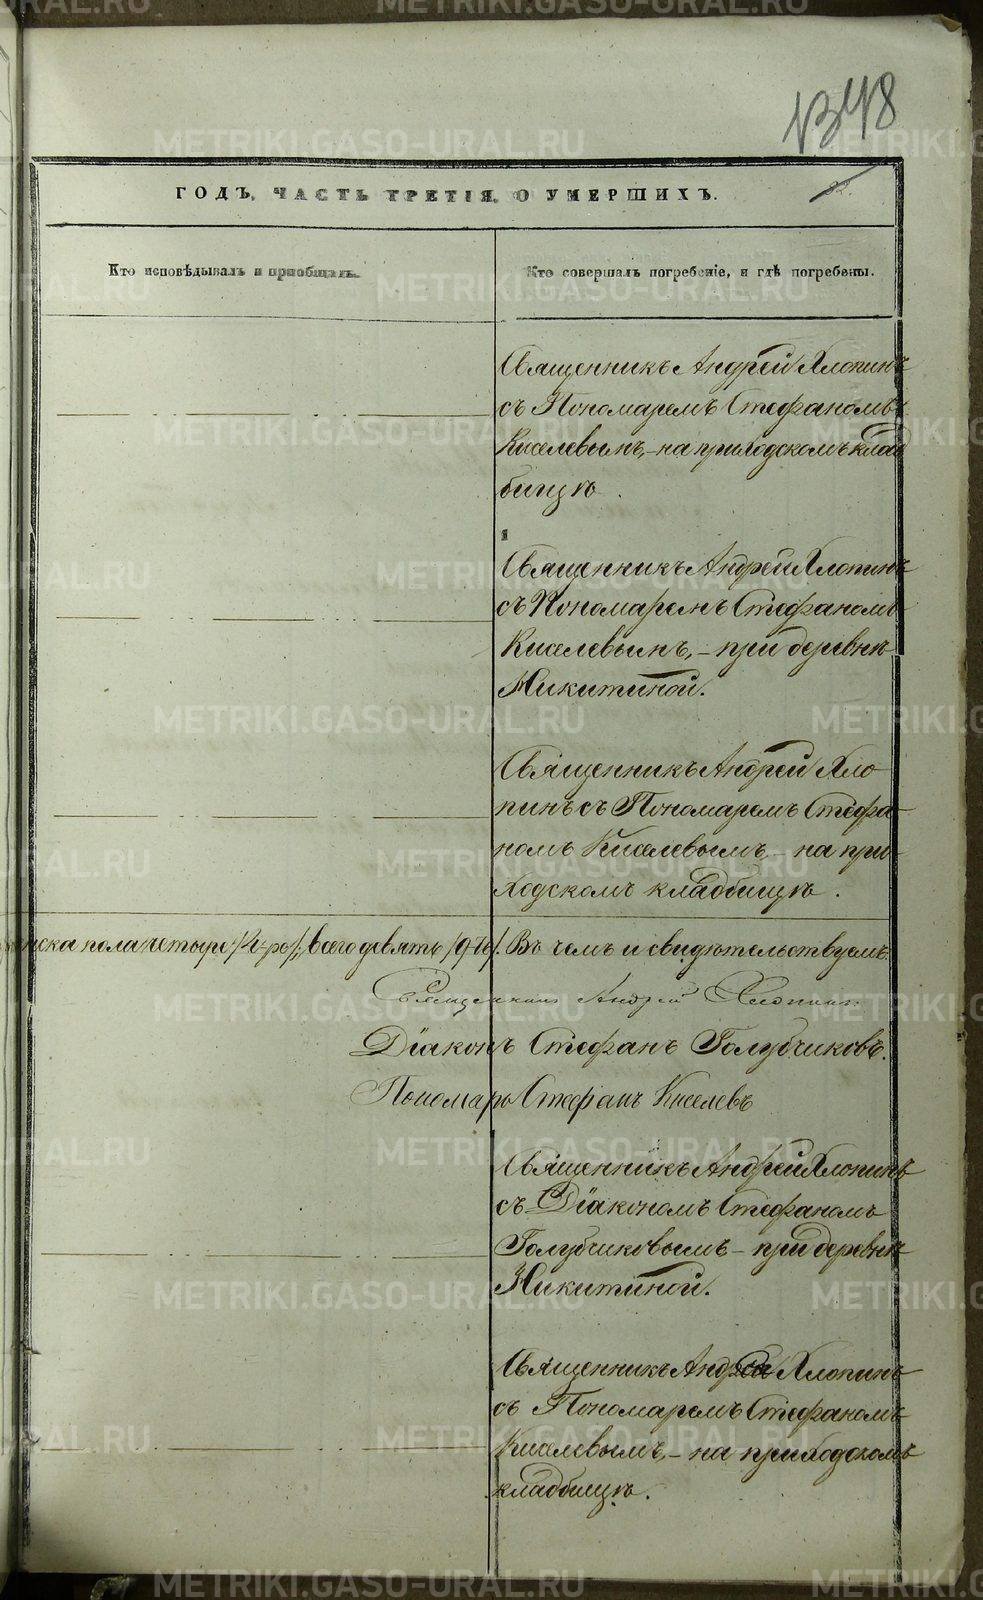 1348
32.
ГОДЪ, ЧАСТЬ ТРЕТІЯ, О УМЕРШИХЪ.
Кто исповѣдывалъ и пріобщалъ.
Кто совершалъ погребеніе, и гдѣ погребены.
Священникъ Андрей Хлопинъ
съ Пономаремъ Стефаномъ
Киселевымъ, – на приходскомъ клад
бищѣ.
Священникъ Андрей Хлопинъ
съ Пономаремъ Стефаномъ
Киселевымъ, – при деревнѣ
Никитиной.
Священникъ Андрей Хло
пинъ съ Пономаремъ Стефа-
номъ Киселевымъ, – на при-
ходскомъ кладбищѣ.
нска пола четыре /4-ре/, всего девять /9-ть/. Въ чемъ и свидѣтельствуемъ
Священникъ Андрей Хлопинъ
Діаконъ Стефанъ Голубчиковъ.
Пономарь Стефанъ Киселевъ
Священникъ Андрей Хлопинъ
съ Діакономъ Стефаномъ
Голубчиковымъ – при деревнѣ
Никитиной.
Священникъ Андрей Хлопинъ
съ Пономаремъ Стефаномъ
Киселевымъ, – на приходскомъ
кладбищѣ.
METRIKI.GASO-URAL.RU